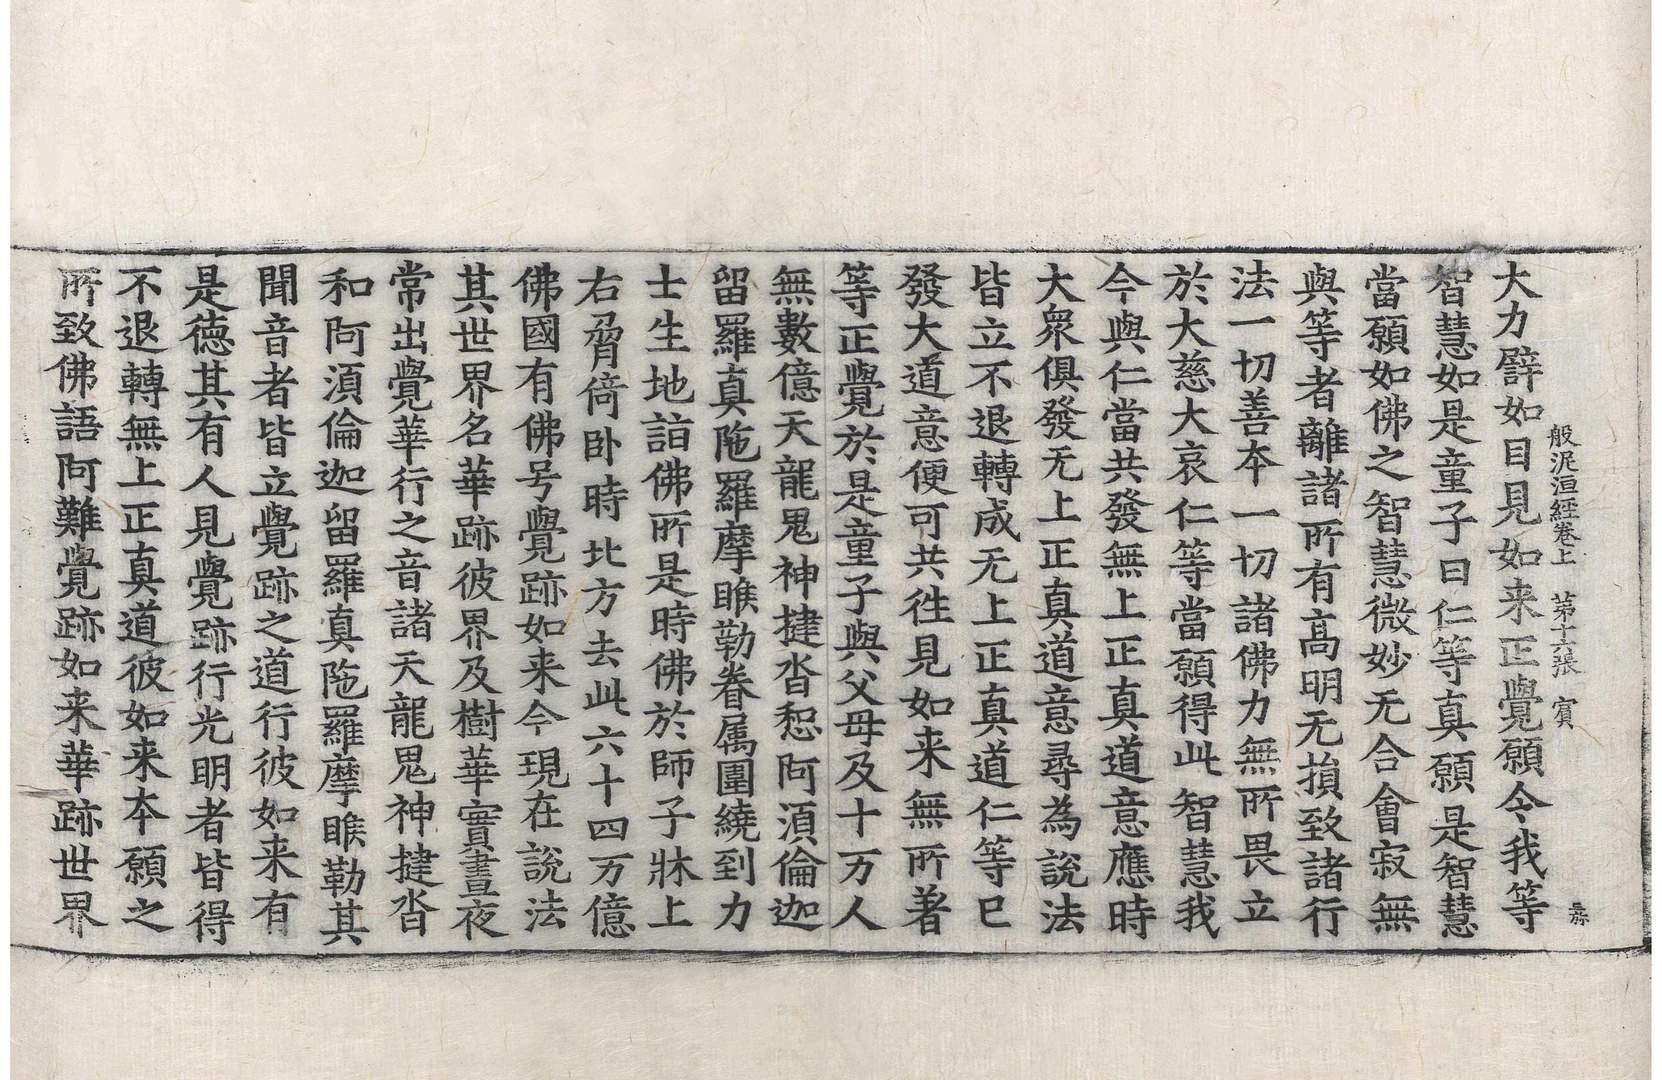 般泥洹經卷上　第十六張　賓
大力譬如目見如来正覺願令我等
智慧如是童子曰仁等真願是智慧
當願如佛之智慧微妙无合會寂無
與等者離諸所有高明无損致諸行
法一切善本一切諸佛力無所畏立
於大慈大哀仁等當願得此智慧我
今與仁當共發無上正真道意應時
大衆俱發无上正真道意尋為說法
皆立不退轉成无上正真道仁等已
發大道意便可共往見如来無所著
等正覺於是童子與父母及十万人
無數億天龍鬼神揵沓惒阿須倫迦
留羅真陁羅摩睺勒眷属圍繞到力
士生地詣佛所是時佛於師子牀上
右脅倚卧時北方去此六十四万億
佛國有佛号覺跡如来今現在說法
其世界名華跡彼界及樹華實晝夜
常出覺華行之音諸天龍鬼神揵沓
和阿須倫迦留羅真陁羅摩睺勒其
聞音者皆立覺跡之道行彼如来有
是德其有人見覺跡行光明者皆得
不退轉無上正真道彼如来本願之
所致佛語阿難覺跡如来華跡世界